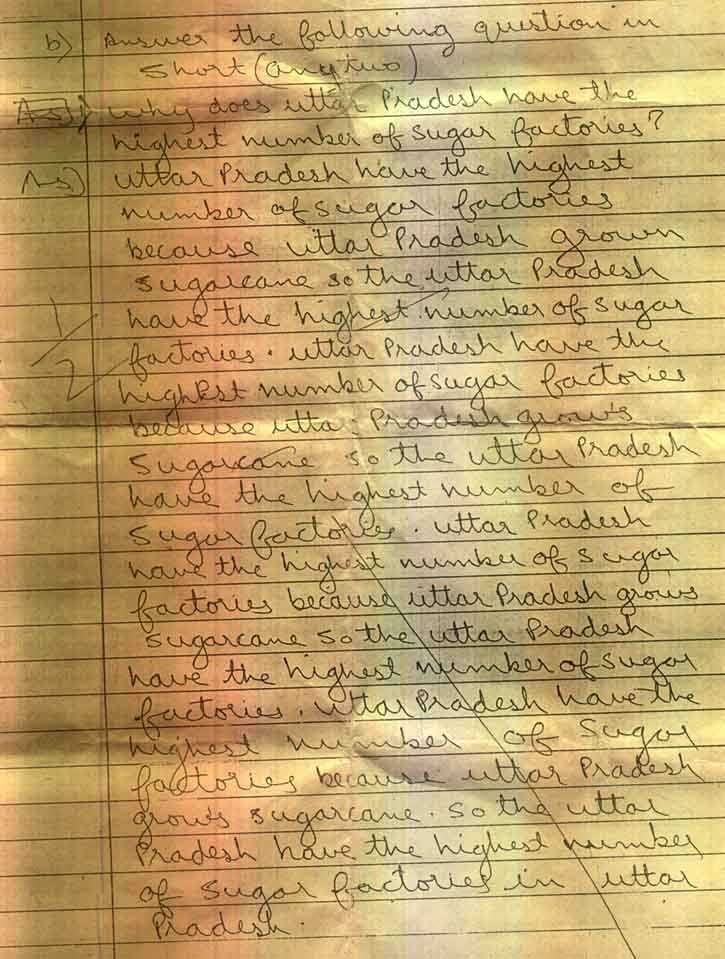 b) Answer the following question in
short (any two)
As) why does uttar Pradesh have the
highest number of sugar factories?
As) uttar Pradesh have the highest
number of sugar factories
because uttar Pradesh grown
sugarcane so the uttar Pradesh
have the highest number of sugar
1/2
factories. uttar Pradesh have the
highest number of sugar factories
because utta. Pradesh grow's
sugarcane so the uttar Pradesh
have the highest number of
sugar factories. uttar Pradesh
have the highest number of sugar
factories because uttar Pradesh grows
sugarcane so the uttar Pradesh
have the highest number of sugar
factories. uttar Pradesh have the
highest number of sugar
factories because uttar Pradesh
grow's sugarcane. so the uttar
Pradesh have the highest number
of sugar factories in uttar
Pradesh.